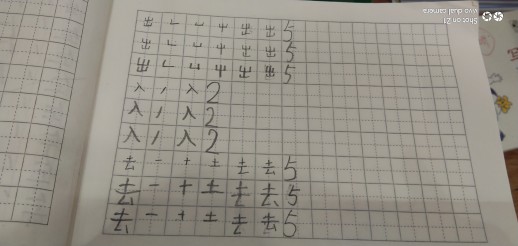 Shot on Z1
vivo dual camera
出 ㇄ 凵 屮 出 出 5
出 ㇄ 凵 屮 出 出 5
出 ㇄ 凵 屮 出 出 5
入 丿 入 2
入 丿 入 2
入 丿 入 2
去 一 十 土 去 去 5
去 一 十 土 去 去 5
去 一 十 土 去 去 5